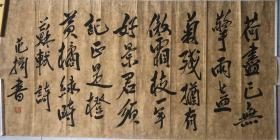 荷盡已無
擎雨盖
菊残猶有
傲霜枝一年
好景君須
記正是橙
黄橘緑時
蘇軾詩
范